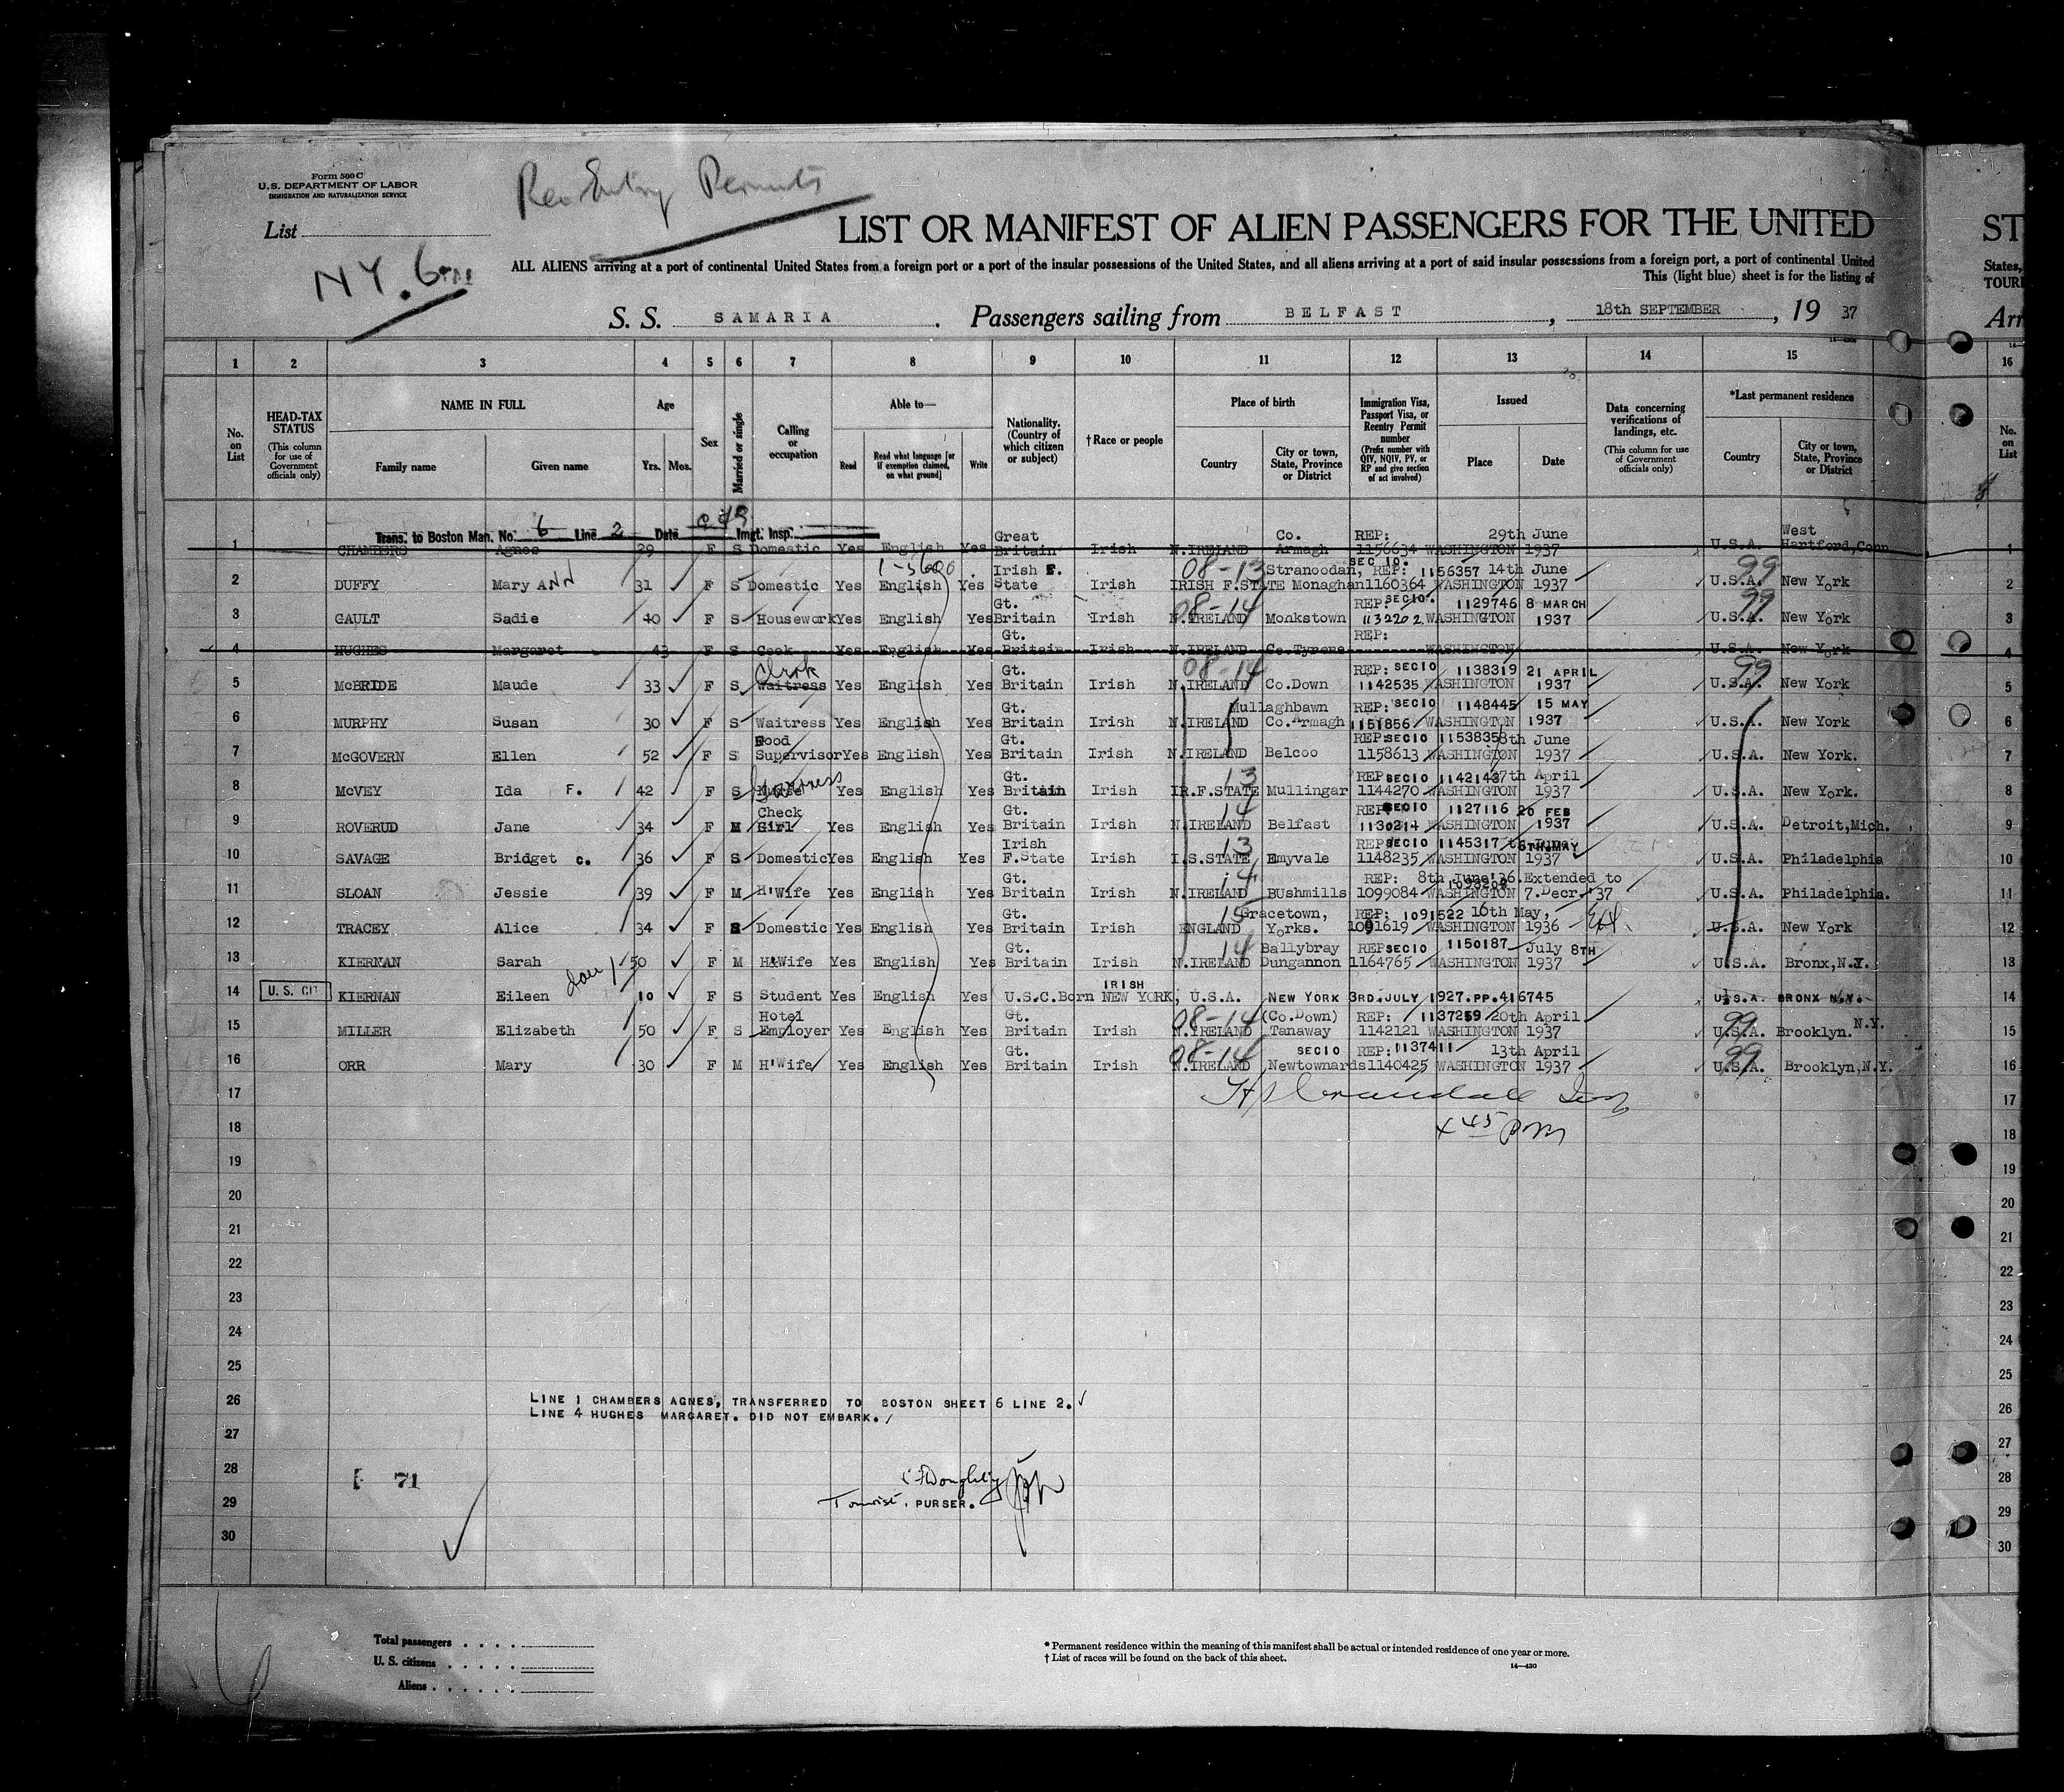 Form 500 C
U.S. DEPARTMENT OF LABOR
IMMIGRATION AND NATURALIZATION SERVICE
Re-Entry Permits
List
NY. 6
LIST OR MANIFEST OF ALIEN PASSENGERS FOR THE UNITED
ST
ALL ALIENS arriving at a port of continental United States from a foreign port or a port of the insular possessions of the United States, and all aliens arriving at a port of said insular possessions from a foreign port, a port of continental United
States,
This (light blue) sheet is for the listing of
TOURI
S. S. SAMARIA. Passengers sailing from BELFAST, 18th SEPTEMBER, 19 37
Arr
1 2 3 4 5 6 7 8 9 10 11 12 13 14 15 16
No. on List
HEAD-TAX STATUS (This column for use of Government officials only)
NAME IN FULL
Family name Given name
Age
Yrs. Mos.
Sex
Married or single
Calling or occupation
Able to—
Read Read what language [or if exemption claimed, on what ground] Write
Nationality. (Country of which citizen or subject)
†Race or people
Place of birth
Country City or town, State, Province or District
Immigration Visa, Passport Visa, or Reentry Permit number (Prefix number with QIV, NQIV, PV, or RP and give section of act involved)
Issued
Place Date
Data concerning verifications of landings, etc. (This column for use of Government officials only)
*Last permanent residence
Country City or town, State, Province or District
No. on List
Trans. to Boston Man. No. 6 Line 2 Date Imgt. Insp.
1 CHAMBERS Agnes 29 F S Domestic Yes English Yes Great Britain Irish N.IRELAND Co. Armagh REP: 1156634 WASHINGTON 29th June 1937 U.S.A. West Hartford, Conn 1
2 DUFFY Mary ANN 31 F S Domestic Yes English Yes Irish F. State Irish 08-13 IRISH F.STATE Stranoodan, Monaghan SEC 10. REP: 1156357 1160364 WASHINGTON 14th June 1937 99 U.S.A. New York 2
3 GAULT Sadie 40 F S Housework Yes English Yes Gt. Britain Irish 08-14 N.IRELAND Monkstown REP: SEC10. 1129746 1132202 WASHINGTON 8 MARCH 1937 99 U.S.A. New York 3
4 HUGHES Margaret 43 F S Cook Yes English Yes Gt. Britain Irish N.IRELAND Co.Tyrone REP: WASHINGTON U.S.A. New York 4
5 McBRIDE Maude 33 F S Waitress Clerk Yes English Yes Gt. Britain Irish 08-14 N.IRELAND Co.Down REP: SEC10 1138319 1142535 WASHINGTON 21 APRIL 1937 99 U.S.A. New York 5
6 MURPHY Susan 30 F S Waitress Yes English Yes Gt. Britain Irish N.IRELAND Mullaghbawn Co.Armagh REP: SEC10 1148445 1151856 WASHINGTON 15 MAY 1937 U.S.A. New York 6
7 McGOVERN Ellen 52 F S Food Supervisor Yes English Yes Gt. Britain Irish N.IRELAND Belcoo REP: SEC10 1153835 1158613 WASHINGTON 8th June 1937 U.S.A. New York. 7
8 McVEY Ida F. 42 F S Yes English Yes Gt. Britain Irish 13 IR.F.STATE Mullingar REP SEC10 1142143 1144270 WASHINGTON 27th April 1937 U.S.A. New York. 8
9 ROVERUD Jane 34 F M Check Girl Yes English Yes Gt. Britain Irish 14 N.IRELAND Belfast REP SEC10 1127116 1130214 WASHINGTON 20 FEB 1937 U.S.A. Detroit, Mich. 9
10 SAVAGE Bridget C. 36 F S Domestic Yes English Yes Irish F.State Irish 13 I.S.STATE Emyvale REP SEC10 1145317 1148235 WASHINGTON 6TH MAY 1937 U.S.A. Philadelphia 10
11 SLOAN Jessie 39 F M H'Wife Yes English Yes Gt. Britain Irish 14 N.IRELAND Bushmills REP: 8th June'36.Extended to 1099084 WASHINGTON 7.Decr.'37 U.S.A. Philadelphia. 11
12 TRACEY Alice 34 F S Domestic Yes English Yes Gt. Britain Irish 15 ENGLAND Gracetown, Yorks. REP: 1091522 1091619 WASHINGTON 16th May, 1936 U.S.A. New York 12
13 KIERNAN Sarah 50 F M H'Wife Yes English Yes Gt. Britain Irish 14 N.IRELAND Ballybray Dungannon REP SEC10 1150187 1164765 WASHINGTON July 8TH 1937 U.S.A. Bronx, N.Y. 13
14 U.S. CIT KIERNAN Eileen dau 10 F S Student Yes English Yes U.S.C.Born NEW YORK, IRISH U.S.A. NEW YORK 3RD.JULY 1927.PP.416745 U.S.A. BRONX N.Y. 14
15 MILLER Elizabeth 50 F S Hotel Employer Yes English Yes Gt. Britain Irish 08-14 N.IRELAND (Co.Down) Tanaway REP: 1137259 1142121 WASHINGTON 20th April 1937 99 U.S.A. Brooklyn. N.Y. 15
16 ORR Mary 30 F M H'Wife Yes English Yes Gt. Britain Irish 08-14 N.IRELAND Newtownards SEC10 REP: 1137411 1140425 WASHINGTON 13th April 1937 99 U.S.A. Brooklyn, N.Y. 16
17 17
4 45 PM
18 18
19 19
20 20
21 21
22 22
23 23
24 24
25 25
26 LINE 1 CHAMBERS AGNES, TRANSFERRED TO BOSTON SHEET 6 LINE 2. 26
LINE 4 HUGHES MARGARET. DID NOT EMBARK.
27 27
28 71 28
29 Tourist. PURSER. 29
30 30
Total passengers
U.S. citizens
Aliens
* Permanent residence within the meaning of this manifest shall be actual or intended residence of one year or more.
† List of races will be found on the back of this sheet.
14—430